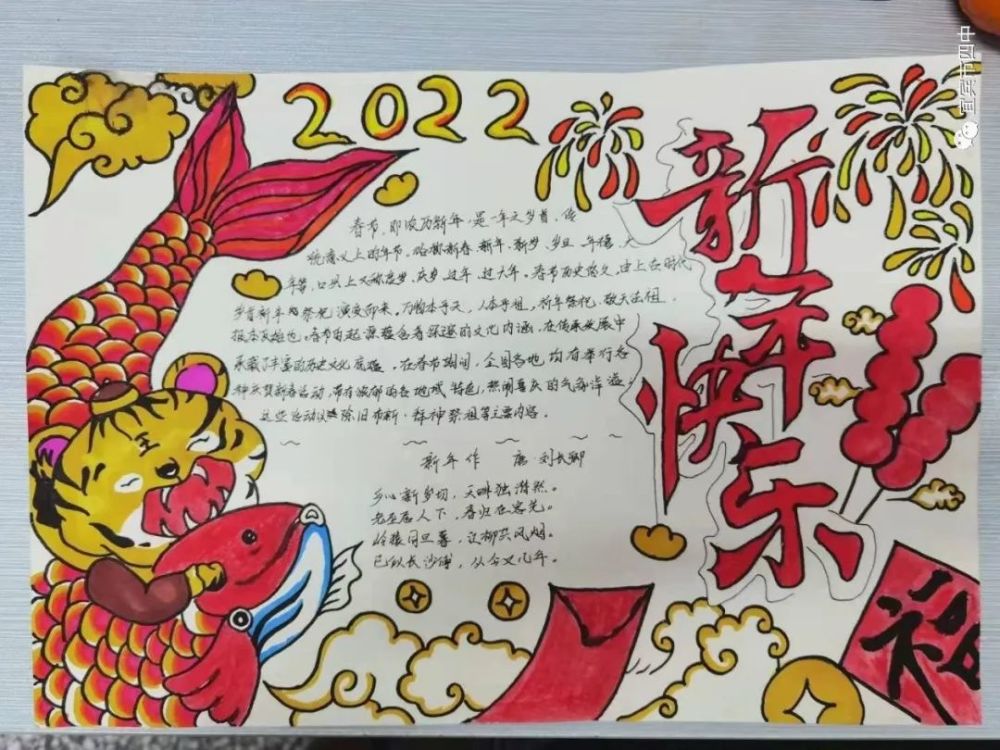 2022
新年快乐
春节,即农历新年,是一年之岁首,传
统意义上的年节。俗称新春、新年、新岁、岁旦、年禧、大
年等,口头上又称度岁、庆岁、过年、过大年。春节历史悠久,由上古时代
岁首祈年祭祀演变而来,万物本乎天,人本乎祖,祈年祭祀、敬天法祖,
报本反始也。春节的起源蕴含着深邃的文化内涵,在传承发展中
承载了丰富的历史文化底蕴。在春节期间,全国各地均有举行各
种庆贺新春活动,带有浓郁的各地域特色,热闹喜庆的气氛洋溢。
这些活动以除旧布新、拜神祭祖等主要内容。
新年作 唐·刘长卿
乡心新岁切,天畔独潸然。
老至居人下,春归在客先。
岭猿同旦暮,江柳共风烟。
已似长沙傅,从今又几年。
福
王
宜宾市四中